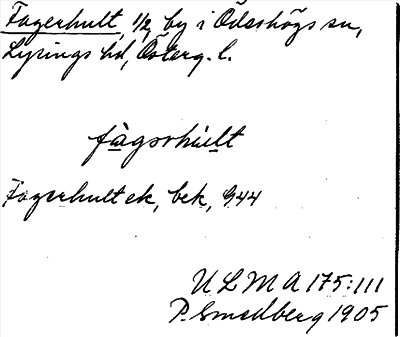 Fagerhult, 1/2, by i Ödeshögs sn,
Lysings hd, Österg. l.
fàgərhúlt
Fagerhult ek, bek, G44
ULMA 175:111
P. Smedberg 1905